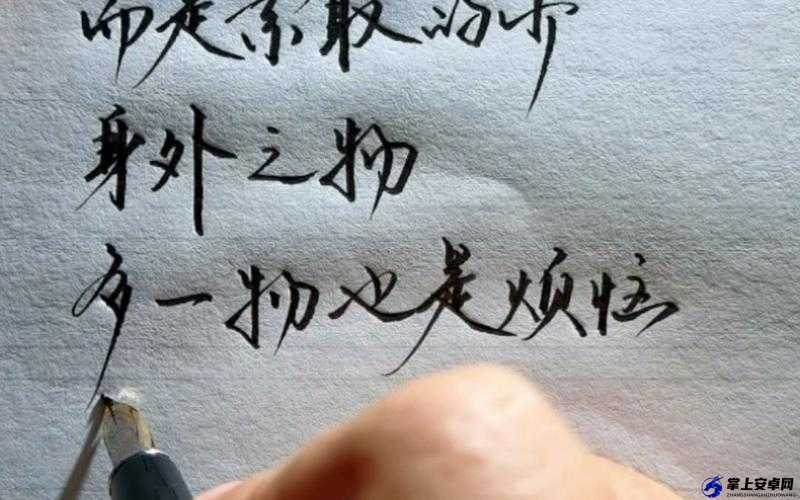 而是索取的少
身外之物
多一物也是烦恼
掌上安卓网
ZHANGSHANGANZHUOWANG